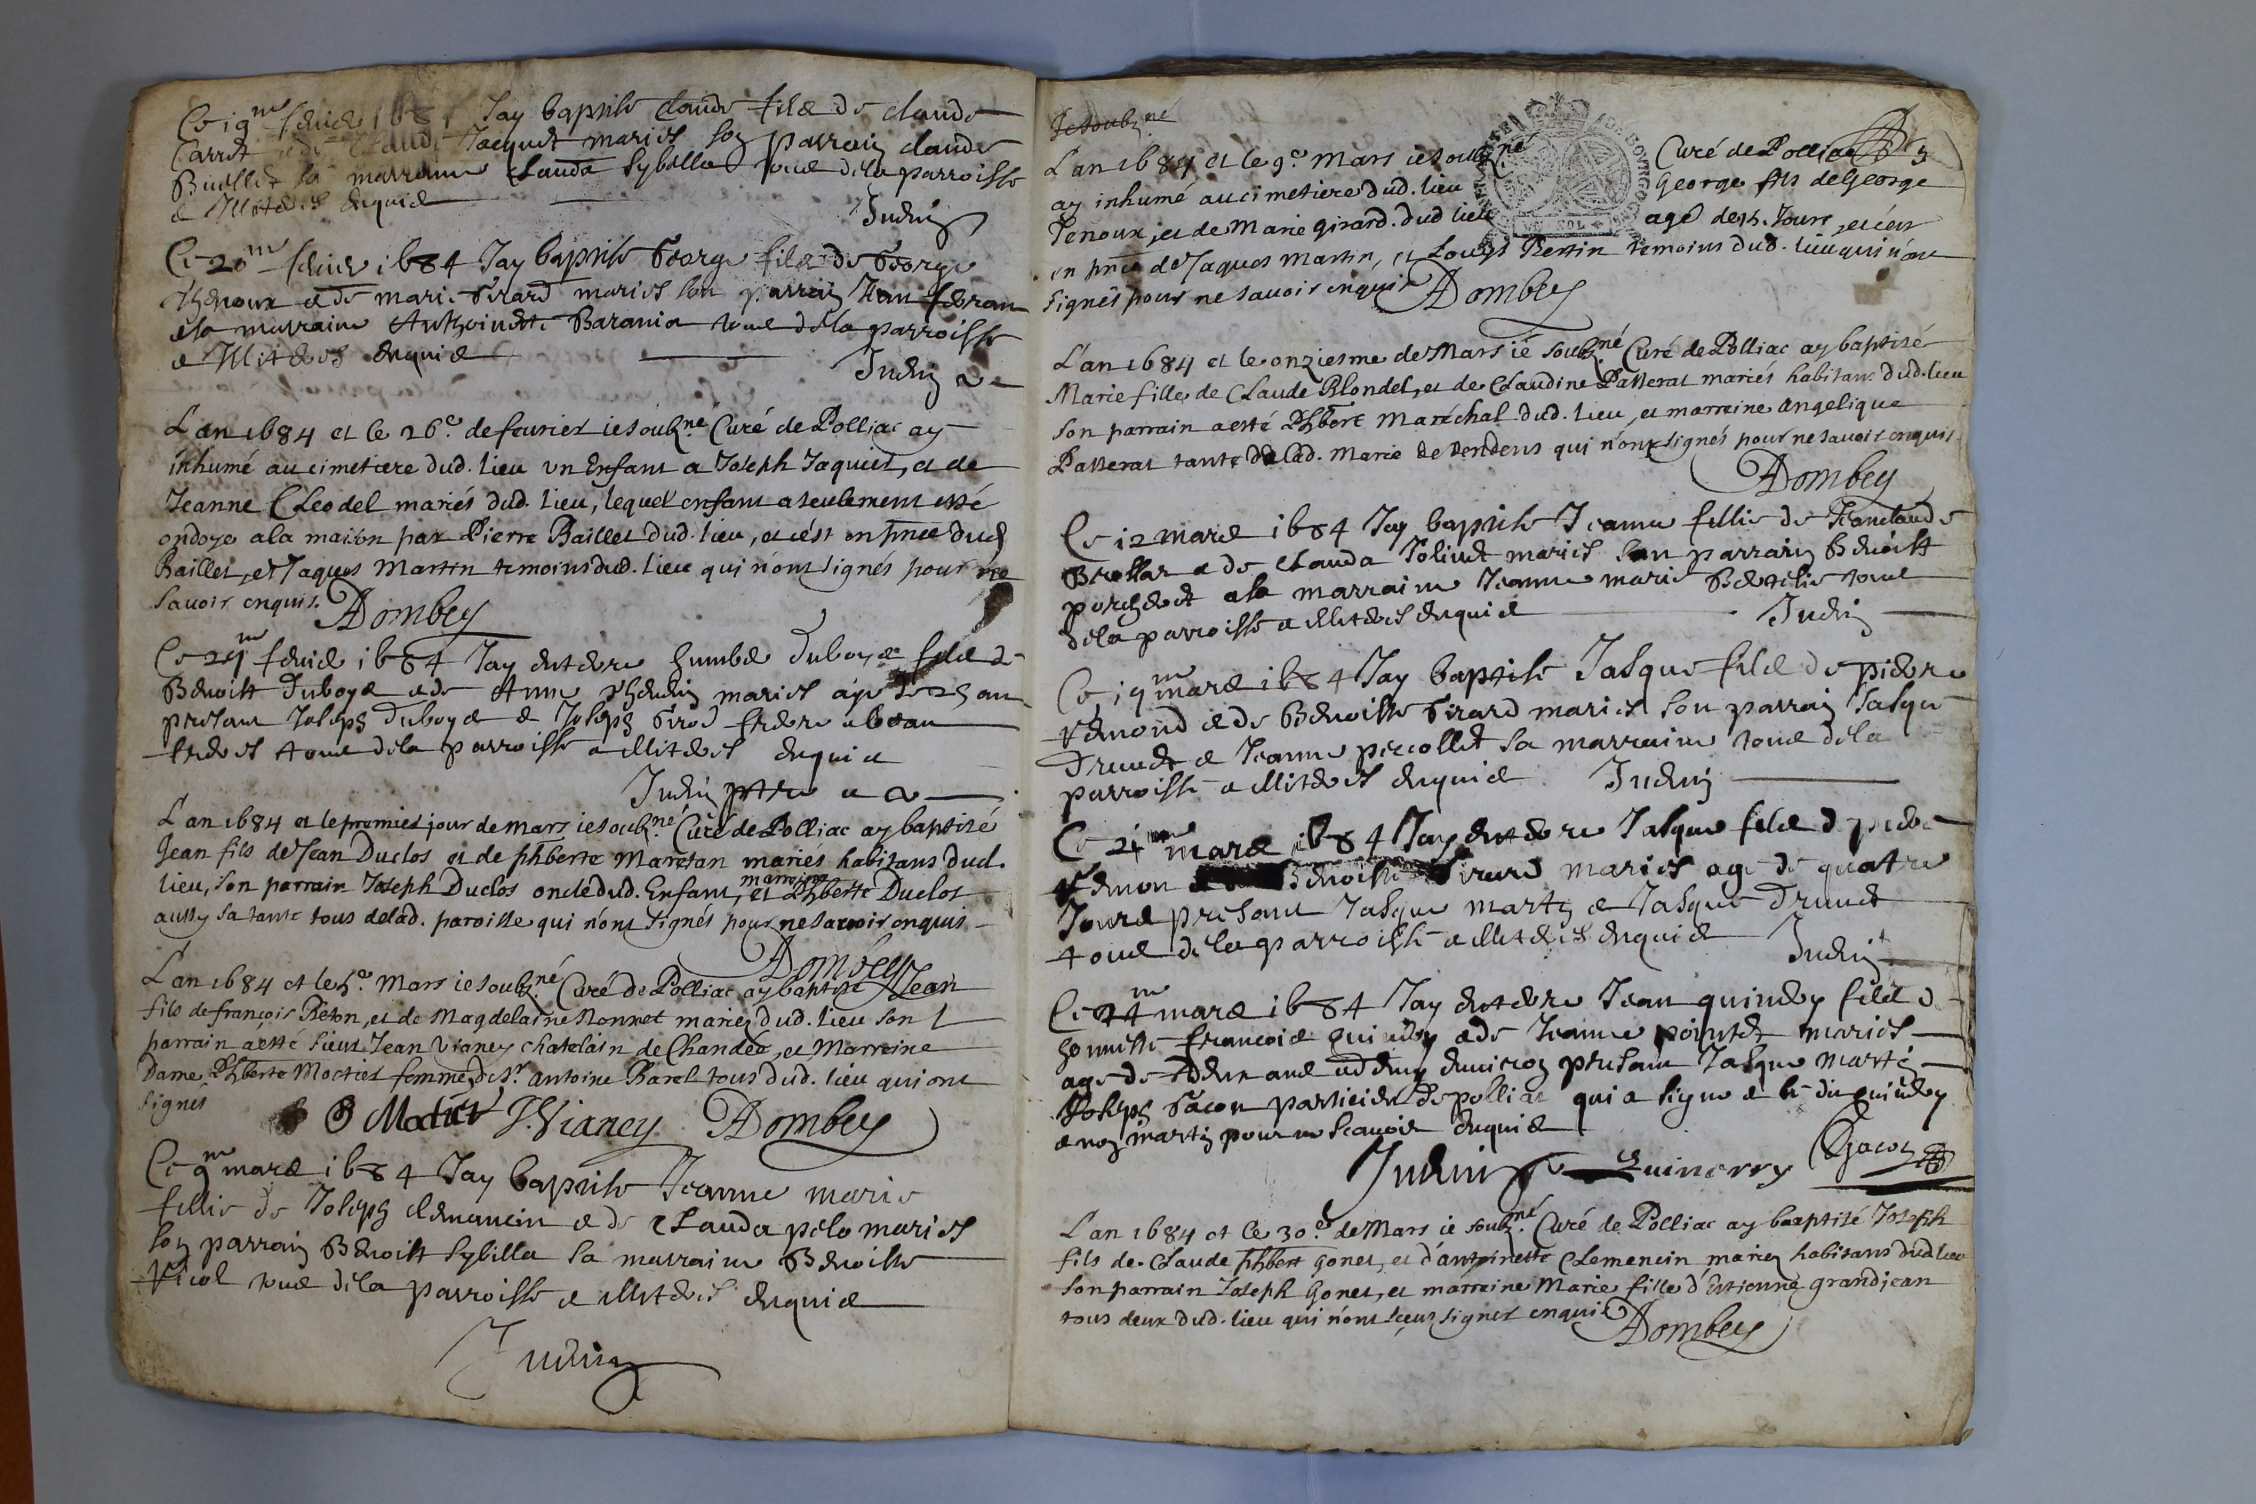 Ce 19me feuie 1684 Jay baptise Claude filz de claude
Carret Jacquet maries son parrain claude
Buellet sa marraine Clauda Sybella tous de la parroisse
e illiteres enquis
Judin
Ce 20me feuie 1684 Jay baptise George filz de George
Thenoux e de marie Girard maries son parrain Jean
e la marraine Anthoinette Barania tous de la parroisse
e illiteres enquis
Judin
L'an 1684 et le 26e de feurier ie soubz.né Curé de Polliac ay
inhumé au cimetiere dud. lieu vn Enfant a Joseph Jaquiet, et de
Jeanne Cleodel mariés dud. lieu, lequel enfant a seulement esté
ondoye a la maison par Pierre Baillet dud. lieu, et c'est en pnce dud
Baillet, et Jaques Martin temoins dud. lieu qui n'ont signés pour ne
savoir enquis. ADombey
Ce 29me feuie 1684 Jay entere humbe duboys filz de
Benoist duboys e de Anne maries age de 25 an
presant Joseph duboys e Joseph Girod frere e beau
freres tous de la parroisse e illiteres enquis
Judin ptre
L'an 1684 et le premier jour de mars ie soubz.né Curé de Polliac ay baptisé
Jean fils de Jean Duclos et de phberte Maretan mariés habitans dud.
lieu, son parrain Joseph Duclos oncle dud. Enfant, et marreine Phberte Duclos
aussy sa tante tous de lad. paroisse qui n'ont signés pour ne savoir enquis
ADombey
L'an 1684 et le 5e Mars ie soubz.né Curé de Polliac ay baptisé Jean
fils de françois Peton, et de Magdelaine Monnet mariez dud. lieu son
parrain a esté sieur Jean Vianey chatelain de Chandée, et Marreine
Dame Phberte Moctier femme de Sr. Antoine Barel tous dud. lieu qui ont
signés
Moctier J. Vianey ADombey
Ce 9me mars 1684 Jay baptise Jeanne marie
fillie de Joseph clemancin e de Clauda pelo maries
son parrain Benoist Sybilla sa marraine Benoiste
Vicol tous de la parroisse e illiteres enquis
Judin
Je soubz.né
L'an 1684 et le 9e Mars ie soubz.né Curé de Polliac
ay inhumé au cimetiere dud. lieu George fils de George
Tenoux, et de Marie Girard. dud lieu agé de 15. Jours, et c'est
en pnce de Jaques Martin, et Louys Bertin temoins dud. lieu qui n'ont
signés pour ne savoir enquis ADombey
L'an 1684 et le onziesme de Mars ie soubz.né Curé de Polliac ay baptisé
Marie fille de Claude Blondel, et de Claudine Passerat mariés habitans dud. lieu
son parrain a esté Phbert Maréchal dud. lieu, et marreine Angelique
Passerat tante de lad. Marie de Vendens qui n'ont signés pour ne savoir enquis
ADombey
Ce 12 mars 1684 Jay baptise Jeanne fillie de Jeanclaude
Brollar e de Clauda Jolivet maries son parrain Benoist
porcheret e la marraine Jeanne marie tous
de la parroisse e illiteres enquis Judin
Ce 19me mars 1684 Jay baptise Jasque filz de piere
Vemond e de Benoiste Girard maries son parrain Jasque
Druet e Jeanne percollet sa marraine tous de la
parroisse e illiteres enquis Judin
Ce 24me mars 1684 Jay entere Jasque filz de piere
Vemon Benoiste Girard maries age de quatre
Jours presant Jasque martin e Jasque Druet
tous de la parroisse e illiteres enquis Judin
Ce 24me mars 1684 Jay entere Jean quinery filz de
honneste francois quinery e de Jeanne pointet maries
age de deux ans e demy environ presant Jasque martin
Joseph Gacon particier de polliat qui a signe e le dit quinery
e non martin pour ne scavoir enquis
Judin Quinerry JGacon
L'an 1684 et le 30e de Mars ie soubz.né Curé de Polliac ay baaptisé Joseph
fils de Claude phbert Gonet, et d'antoinette Clemencin mariez habitans dud lieu
son parrain Joseph Gonet, et marreine Marie fille d'Estienne grandjean
tous deux dud. lieu qui n'ont sceu signer enquis ADombey